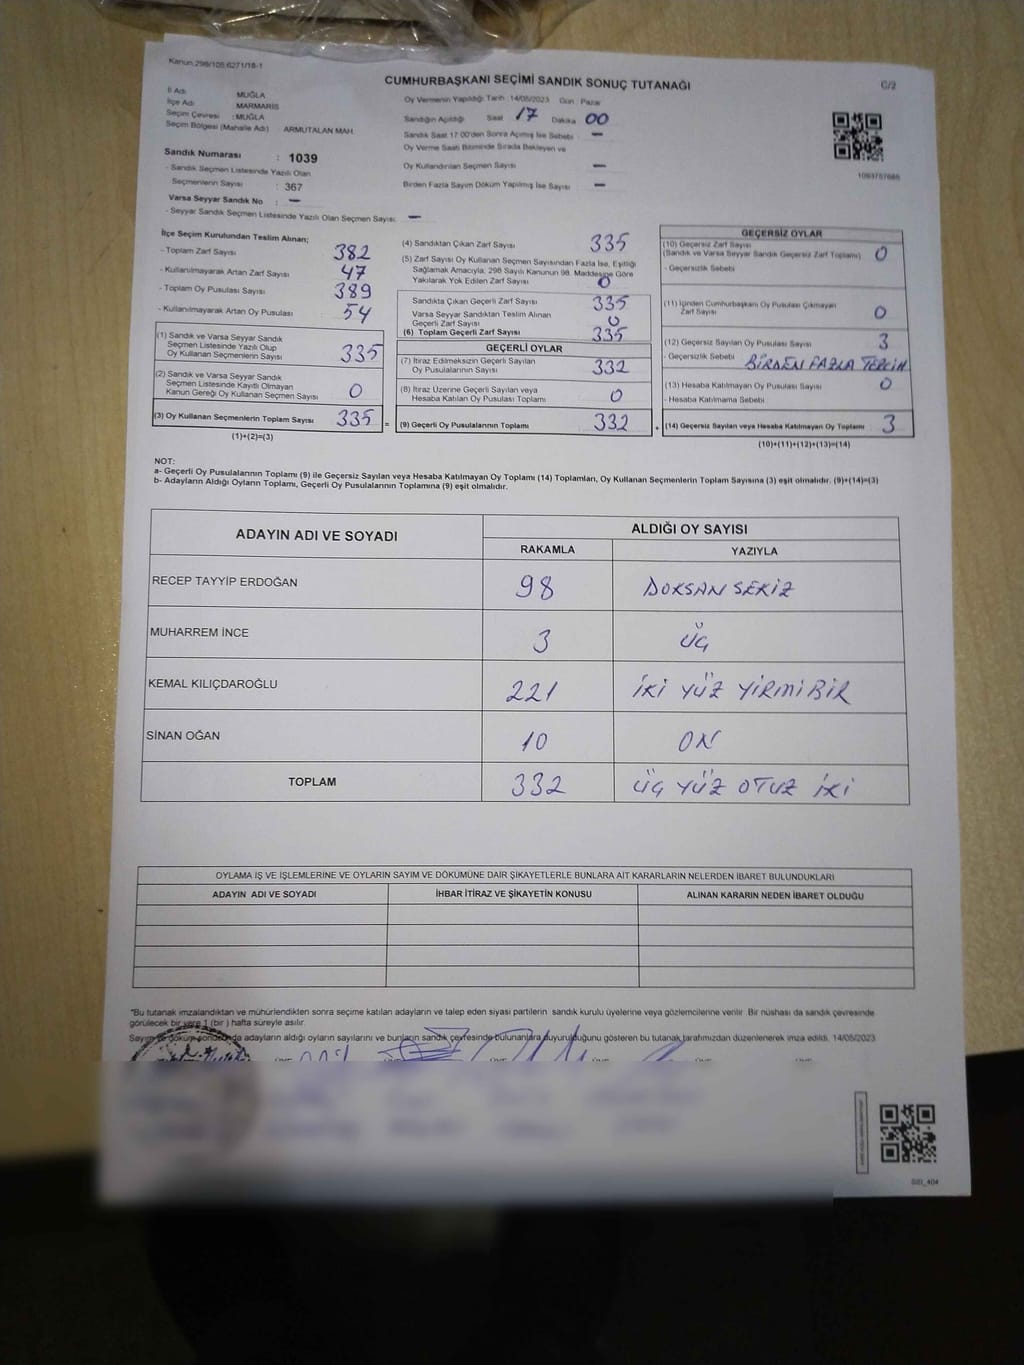 Kanun.298/105.6271/18-1
CUMHURBAŞKANI SEÇİMİ SANDIK SONUÇ TUTANAĞI
C/2
İl Adı MUĞLA
İlçe Adı MARMARİS
Seçim Çevresi : MUĞLA
Seçim Bölgesi (Mahalle Adı) ARMUTALAN MAH.
Sandık Numarası : 1039
- Sandık Seçmen Listesinde Yazılı Olan
Seçmenlerin Sayısı : 367
Varsa Seyyar Sandık No : —
- Seyyar Sandık Seçmen Listesinde Yazılı Olan Seçmen Sayısı: —
Oy Vermenin Yapıldığı Tarih 14/05/2023 Gün : Pazar
Sandığın Açıldığı Saat 17 Dakika 00
Sandık Saat 17:00'den Sonra Açılmış İse Sebebi —
Oy Verme Saati Bitiminde Sırada Bekleyen ve
Oy Kullandırılan Seçmen Sayısı —
Birden Fazla Sayım Döküm Yapılmış İse Sayısı —
İlçe Seçim Kurulundan Teslim Alınan;
- Toplam Zarf Sayısı 382
- Kullanılmayarak Artan Zarf Sayısı 47
- Toplam Oy Pusulası Sayısı 389
- Kullanılmayarak Artan Oy Pusulası 54
(1) Sandık ve Varsa Seyyar Sandık
Seçmen Listesinde Yazılı Olup
Oy Kullanan Seçmenlerin Sayısı 335
(2) Sandık ve Varsa Seyyar Sandık
Seçmen Listesinde Kayıtlı Olmayan
Kanun Gereği Oy Kullanan Seçmen Sayısı 0
(3) Oy Kullanan Seçmenlerin Toplam Sayısı 335 =
(1)+(2)=(3)
(4) Sandıktan Çıkan Zarf Sayısı 335
(5) Zarf Sayısı Oy Kullanan Seçmen Sayısından Fazla İse, Eşitliği
Sağlamak Amacıyla; 298 Sayılı Kanunun 98. Maddesine Göre
Yakılarak Yok Edilen Zarf Sayısı 0
Sandıkta Çıkan Geçerli Zarf Sayısı 335
Varsa Seyyar Sandıktan Teslim Alınan
Geçerli Zarf Sayısı 0
(6) Toplam Geçerli Zarf Sayısı 335
GEÇERLİ OYLAR
(7) İtiraz Edilmeksizin Geçerli Sayılan
Oy Pusulalarının Sayısı 332
(8) İtiraz Üzerine Geçerli Sayılan veya
Hesaba Katılan Oy Pusulası Toplamı 0
(9) Geçerli Oy Pusulalarının Toplamı 332 +
1093757686
GEÇERSİZ OYLAR
(10) Geçersiz Zarf Sayısı
(Sandık ve Varsa Seyyar Sandık Geçersiz Zarf Toplamı) 0
- Geçersizlik Sebebi
(11) İçinden Cumhurbaşkanı Oy Pusulası Çıkmayan
Zarf Sayısı 0
(12) Geçersiz Sayılan Oy Pusulası Sayısı 3
- Geçersizlik Sebebi BİRDEN FAZLA TERCİH
(13) Hesaba Katılmayan Oy Pusulası Sayısı 0
- Hesaba Katılmama Sebebi
(14) Geçersiz Sayılan veya Hesaba Katılmayan Oy Toplamı 3
(10)+(11)+(12)+(13)=(14)
NOT:
a- Geçerli Oy Pusulalarının Toplamı (9) ile Geçersiz Sayılan veya Hesaba Katılmayan Oy Toplamı (14) Toplamları, Oy Kullanan Seçmenlerin Toplam Sayısına (3) eşit olmalıdır. (9)+(14)=(3)
b- Adayların Aldığı Oyların Toplamı, Geçerli Oy Pusulalarının Toplamına (9) eşit olmalıdır.
ADAYIN ADI VE SOYADI ALDIĞI OY SAYISI
RAKAMLA YAZIYLA
RECEP TAYYİP ERDOĞAN 98 DOKSAN SEKİZ
MUHARREM İNCE 3 ÜÇ
KEMAL KILIÇDAROĞLU 221 İKİ YÜZ YİRMİ BİR
SİNAN OĞAN 10 ON
TOPLAM 332 ÜÇ YÜZ OTUZ İKİ
OYLAMA İŞ VE İŞLEMLERİNE VE OYLARIN SAYIM VE DÖKÜMÜNE DAİR ŞİKAYETLERLE BUNLARA AİT KARARLARIN NELERDEN İBARET BULUNDUKLARI
ADAYIN ADI VE SOYADI İHBAR İTİRAZ VE ŞİKAYETİN KONUSU ALINAN KARARIN NEDEN İBARET OLDUĞU
*Bu tutanak imzalandıktan ve mühürlendikten sonra seçime katılan adayların ve talep eden siyasi partilerin sandık kurulu üyelerine veya gözlemcilerine verilir. Bir nüshası da sandık çevresinde
görülecek bir yere 1 (bir ) hafta süreyle asılır.
Sayım ve döküm sonucunda adayların aldığı oyların sayılarını ve bunların sandık çevresinde bulunanlara duyurulduğunu gösteren bu tutanak tarafımızdan düzenlenerek imza edildi. 14/05/2023